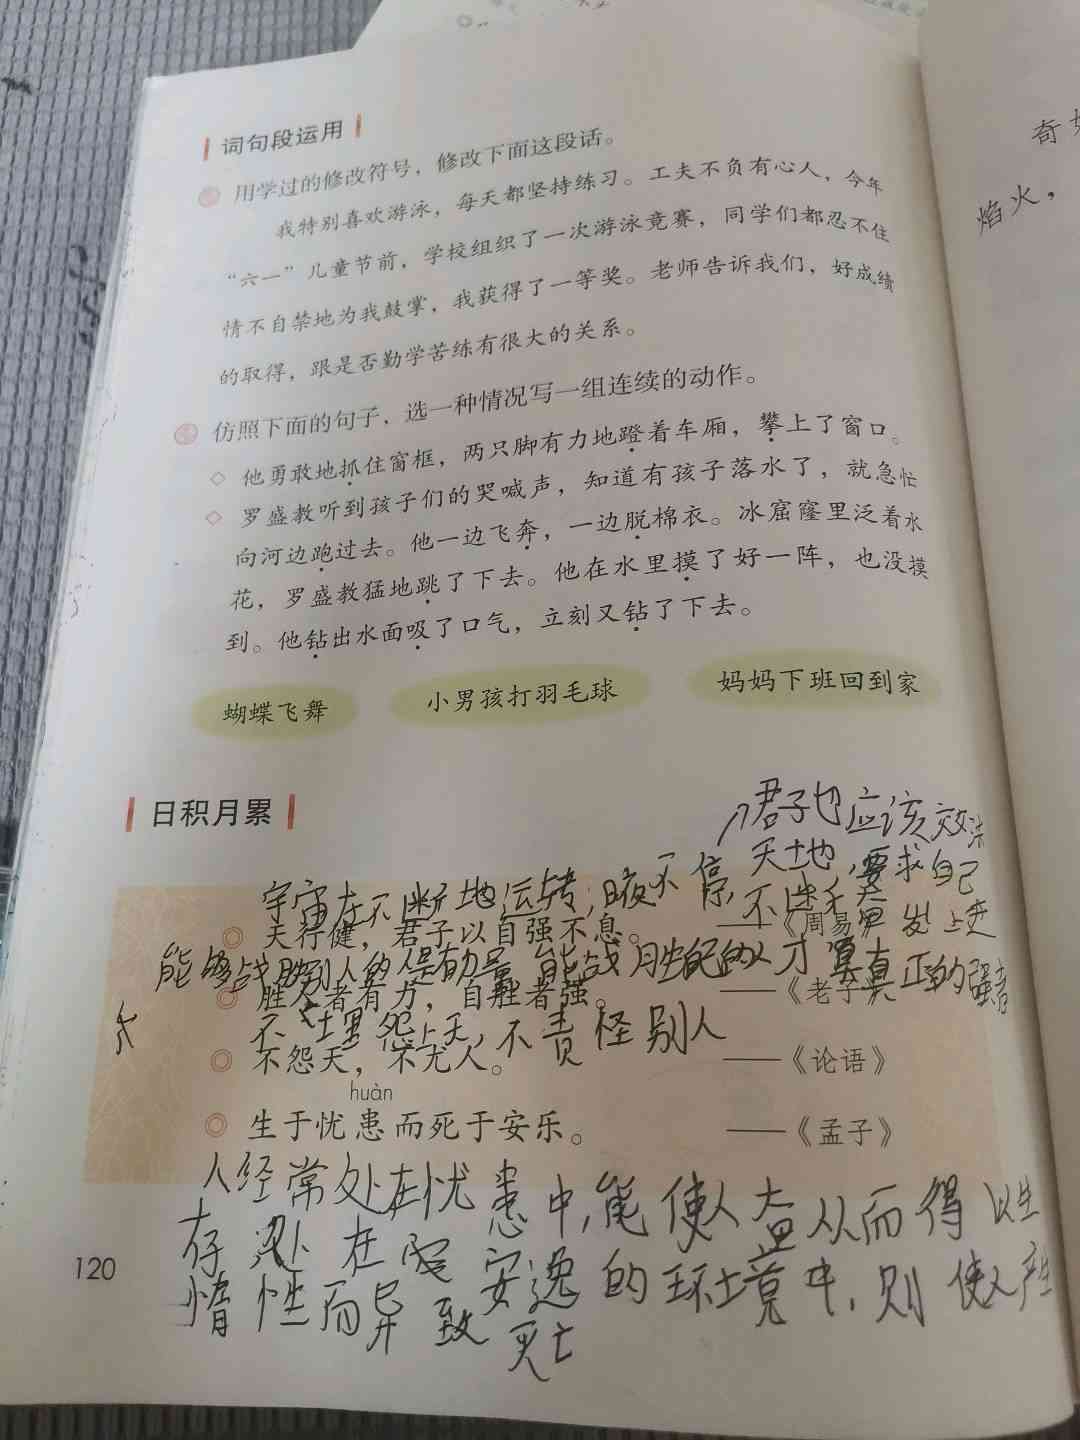 词句段运用
用学过的修改符号，修改下面这段话。
我特别喜欢游泳，每天都坚持练习。工夫不负有心人，今年
“六一”儿童节前，学校组织了一次游泳竞赛，同学们都忍不住
情不自禁地为我鼓掌，我获得了一等奖。老师告诉我们，好成绩
的取得，跟是否勤学苦练有很大的关系。
仿照下面的句子，选一种情况写一组连续的动作。
◇ 他勇敢地抓住窗框，两只脚有力地蹬着车厢，攀上了窗口。
◇ 罗盛教听到孩子们的哭喊声，知道有孩子落水了，就急忙
向河边跑过去。他一边飞奔，一边脱棉衣。冰窟窿里泛着水
花，罗盛教猛地跳了下去。他在水里摸了好一阵，也没摸
到。他钻出水面吸了口气，立刻又钻了下去。
蝴蝶飞舞 小男孩打羽毛球 妈妈下班回到家
日积月累
君子也应该效法
天地，要求自己
宇宙在不断地运转，日夜不停 不 发上进
天行健，君子以自强不息。 ——《周易》
能够战胜别人的人是有力量 能战胜自己的人才算真正的强者
胜人者有力，自胜者强。 ——《老子》
不埋怨上天，不责怪别人
不怨天，不尤人。 ——《论语》
huàn
生于忧患而死于安乐。 ——《孟子》
人经常处在忧患中，能使人 从而得以生
存 处在 安逸的环境中，则使人产生
惰性而导致 死亡
120
奇
焰火，